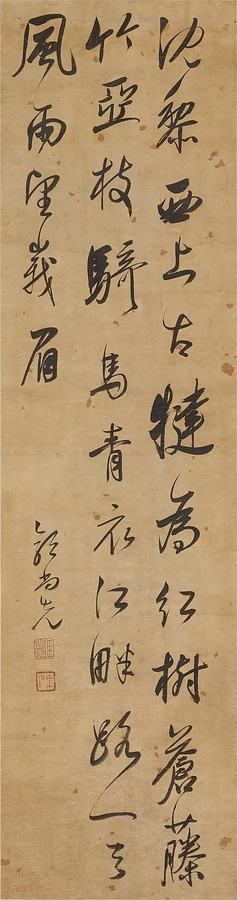 沈黎西上古犍為紅樹蒼藤
竹亞枝騎馬青衣江畔路一天
風雨望峩眉
郭尚先